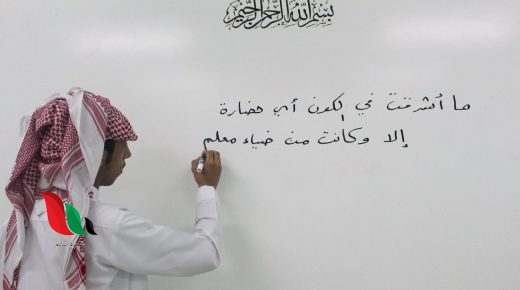 بسم الله الرحمن الرحيم
ما أشرقت في الكون أي حضارة
إلا وكانت من ضياء معلم